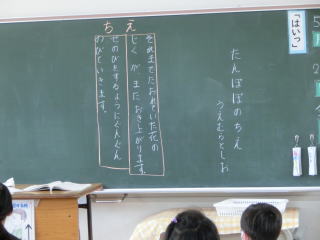 「はいっ」
たんぽぽのちえ
うえむらとしお
ちえ
それまでたおれていた花の
じくが、またおき上がります。
せのびをするようにぐんぐん
のびていきます。